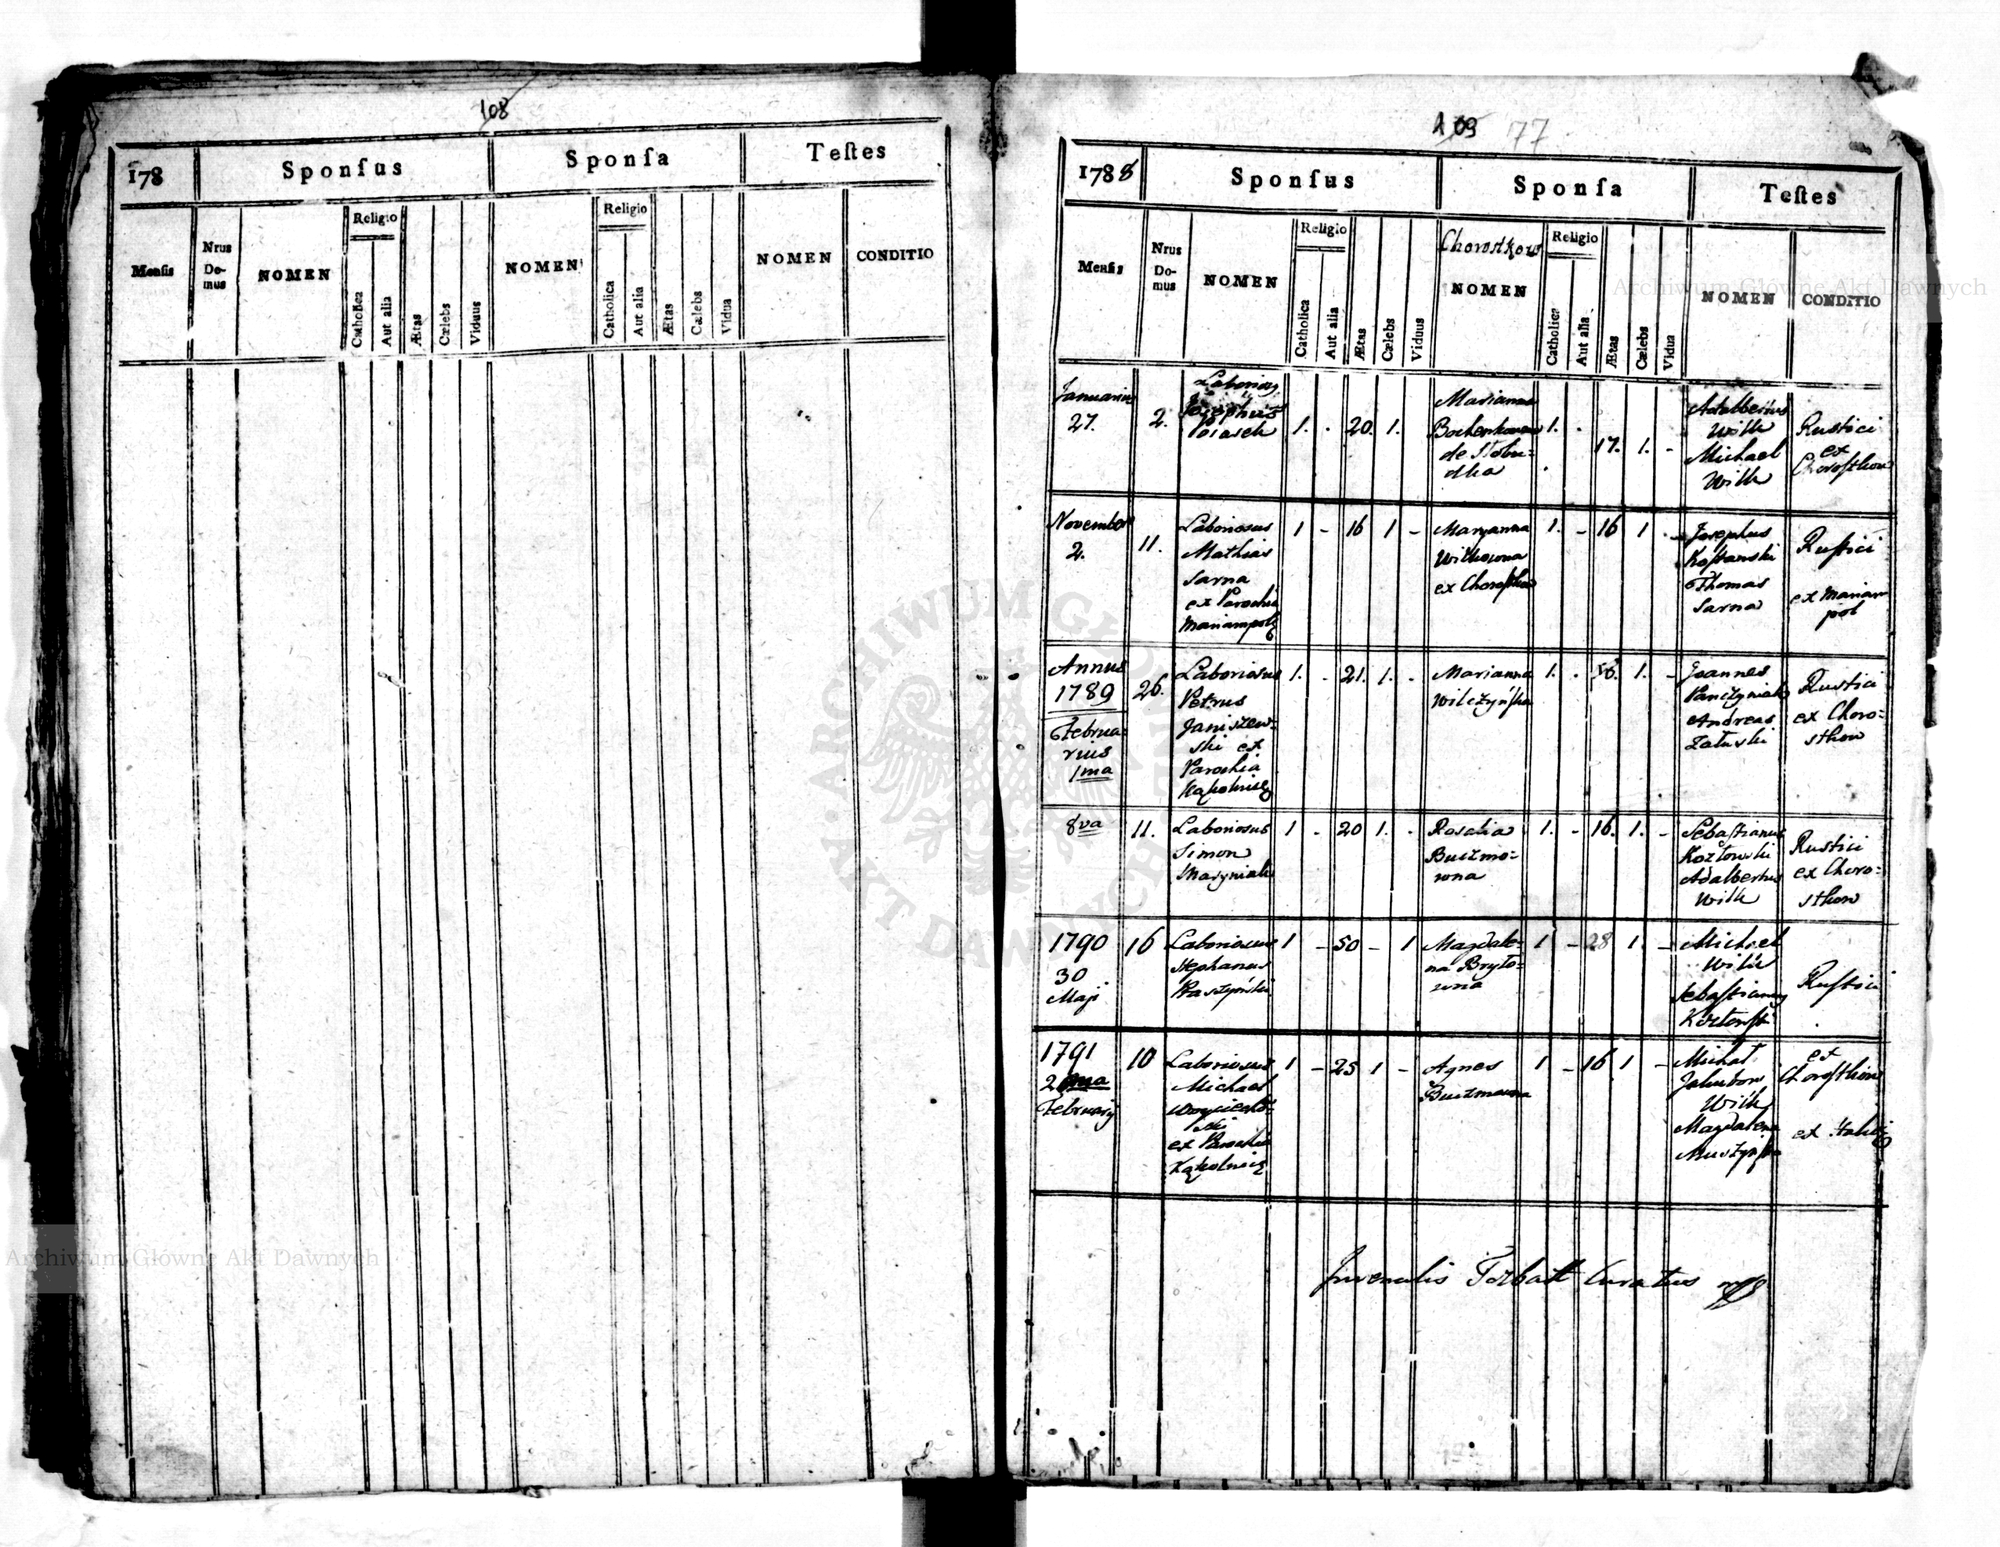 108
178
Sponſus
Sponſa
Teſtes
Menſis
Nrus
Do-
mus
NOMEN
Religio
Catholica
Aut alia
Ætas
Cœlebs
Viduus
NOMEN
Religio
Catholica
Aut alia
Ætas
Cœlebs
Vidua
NOMEN
CONDITIO
109 77
1788
Sponſus
Sponſa
Teſtes
Menſis
Nrus
Do-
mus
NOMEN
Religio
Catholica
Aut alia
Ætas
Cœlebs
Viduus
Chorostkow
NOMEN
Religio
Catholica
Aut alia
Ætas
Cœlebs
Vidua
NOMEN
CONDITIO
Januarius
27.
2.
Josephus
1. . 20. 1.
Marianna
de Slobu-
dka
1. .
17. 1. -
Adalbertus
Wilk
Michael
Wilk
Rustici
ex
Choroſtkow
November
2.
11.
Laboriosus
Mathias
Sarna
ex Parochia
Mariampoli
1 - 16 1 -
Maryanna
Wilkowna
ex Choroſtkow
1. - 16 1 -
Josephus
Koſtanski
Thomas
Sarna
Ruſtici
ex Mariam
pol
Annus
1789
Februa-
rius
1ma
26.
Laboriosus
Petrus
Janiszew-
ski ex
Parochia
1. - 21. 1. .
Marianna
Wilczyńſka
1. . 1. -
Joannes
Panczyniak
Andreas
Załuski
Rustici
ex Choro=
stkow
8va
11.
Laboriosus
Simon
Maryniak
1 - 20 1. .
Rosalia
Buczmo=
wna
1. - 16. 1. -
Sebaſtianus
Kozłowski
Adalbertus
Wilk
Rustici
ex Choro=
stkow
1790
30
Maji
16
Laboriosus
Stephanus
1 - 50 - 1
Magdale-
na Bryło=
wna
1 - 28 1. -
Michael
Wilk
Sebaſtianus
Kozłowſki
Ruſtici
1791
2
February
10
Laboriosus
Michael
ex Parochia
1 - 25 1 -
Agnes
Buczmowna
1 - 16 1 -
Michał
Jakubow
Wilk
Magdalena
ex
Choroſtkow
ex
Juvenalis Curatus
ARCHIWUM GŁÓWNE AKT DAWNYCH
Archiwum Główne Akt Dawnych
Archiwum Główne Akt Dawnych